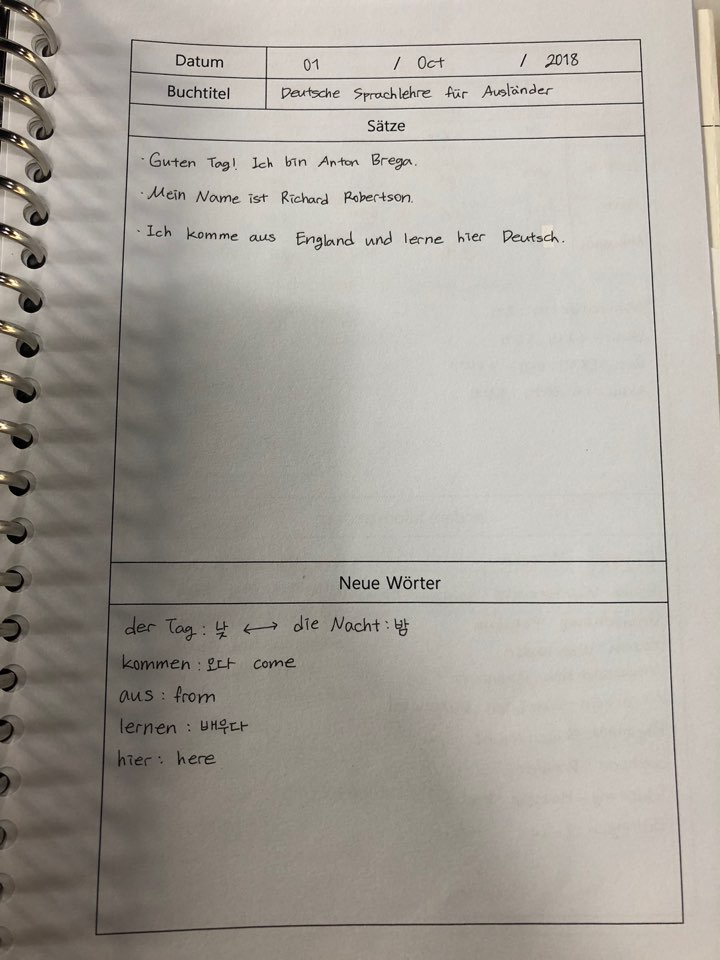 Datum 01 / Oct / 2018
Buchtitel Deutsche Sprachlehre für Ausländer
Sätze
· Guten Tag! Ich bin Anton Brega.
· Mein Name ist Richard Robertson.
· Ich komme aus England und lerne hier Deutsch.
Neue Wörter
der Tag : 낮 ↔ die Nacht : 밤
kommen : 오다 come
aus : from
lernen : 배우다
hier : here